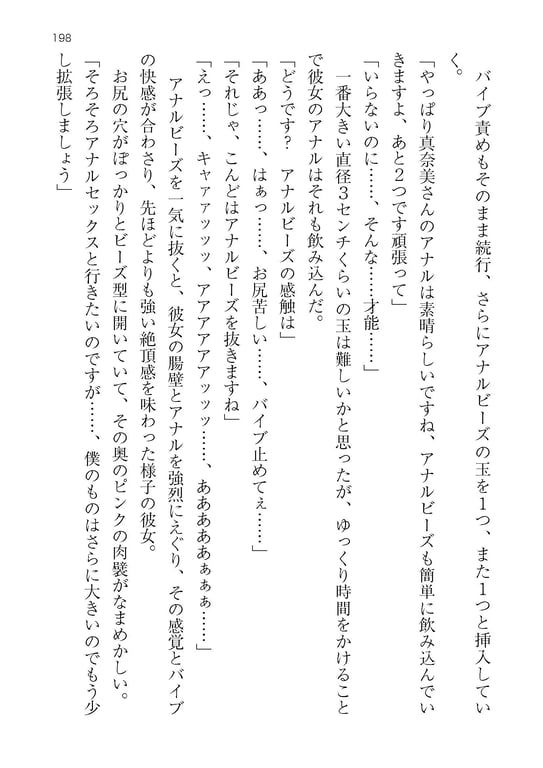 198
バイブ責めもそのまま続行、さらにアナルビーズの玉を1つ、また1つと挿入してい
く。
「やっぱり真奈美さんのアナルは素晴らしいですね、アナルビーズも簡単に飲み込んでい
きますよ、あと2つです頑張って」
「いらないのに……、そんな……才能……」
一番大きい直径3センチくらいの玉は難しいかと思ったが、ゆっくり時間をかけること
で彼女のアナルはそれも飲み込んだ。
「どうです？　アナルビーズの感触は」
「ああっ……、はぁっ……、お尻苦しい……、バイブ止めてぇ……」
「それじゃ、こんどはアナルビーズを抜きますね」
「えっ……、キャァァッッッ、アアアアアァッッッ……、あああああぁぁぁ……」
アナルビーズを一気に抜くと、彼女の腸壁とアナルを強烈にえぐり、その感覚とバイブ
の快感が合わさり、先ほどよりも強い絶頂感を味わった様子の彼女。
お尻の穴がぽっかりとビーズ型に開いていて、その奥のピンクの肉襞がなまめかしい。
「そろそろアナルセックスと行きたいのですが……、僕のものはさらに大きいのでもう少
し拡張しましょう」